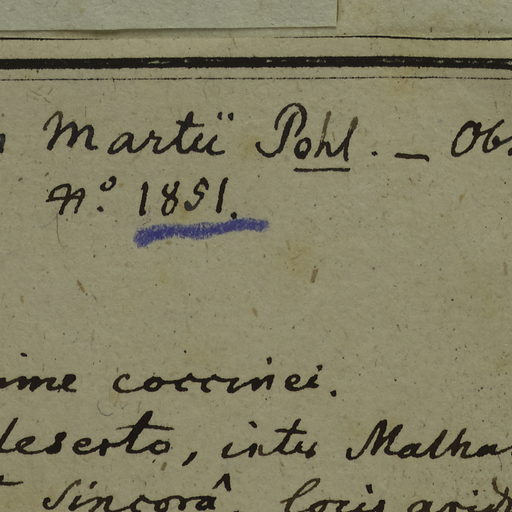 Martii Pohl. — Obs.
N.º 1851.
coccinei.
deserto, inter Malha
Sincorâ, locis arid